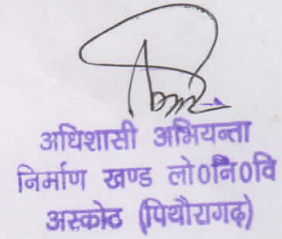 अधिशासी अभियन्ता
निर्माण खण्ड लो०नि०वि
अस्कोट (पिथौरागढ़)